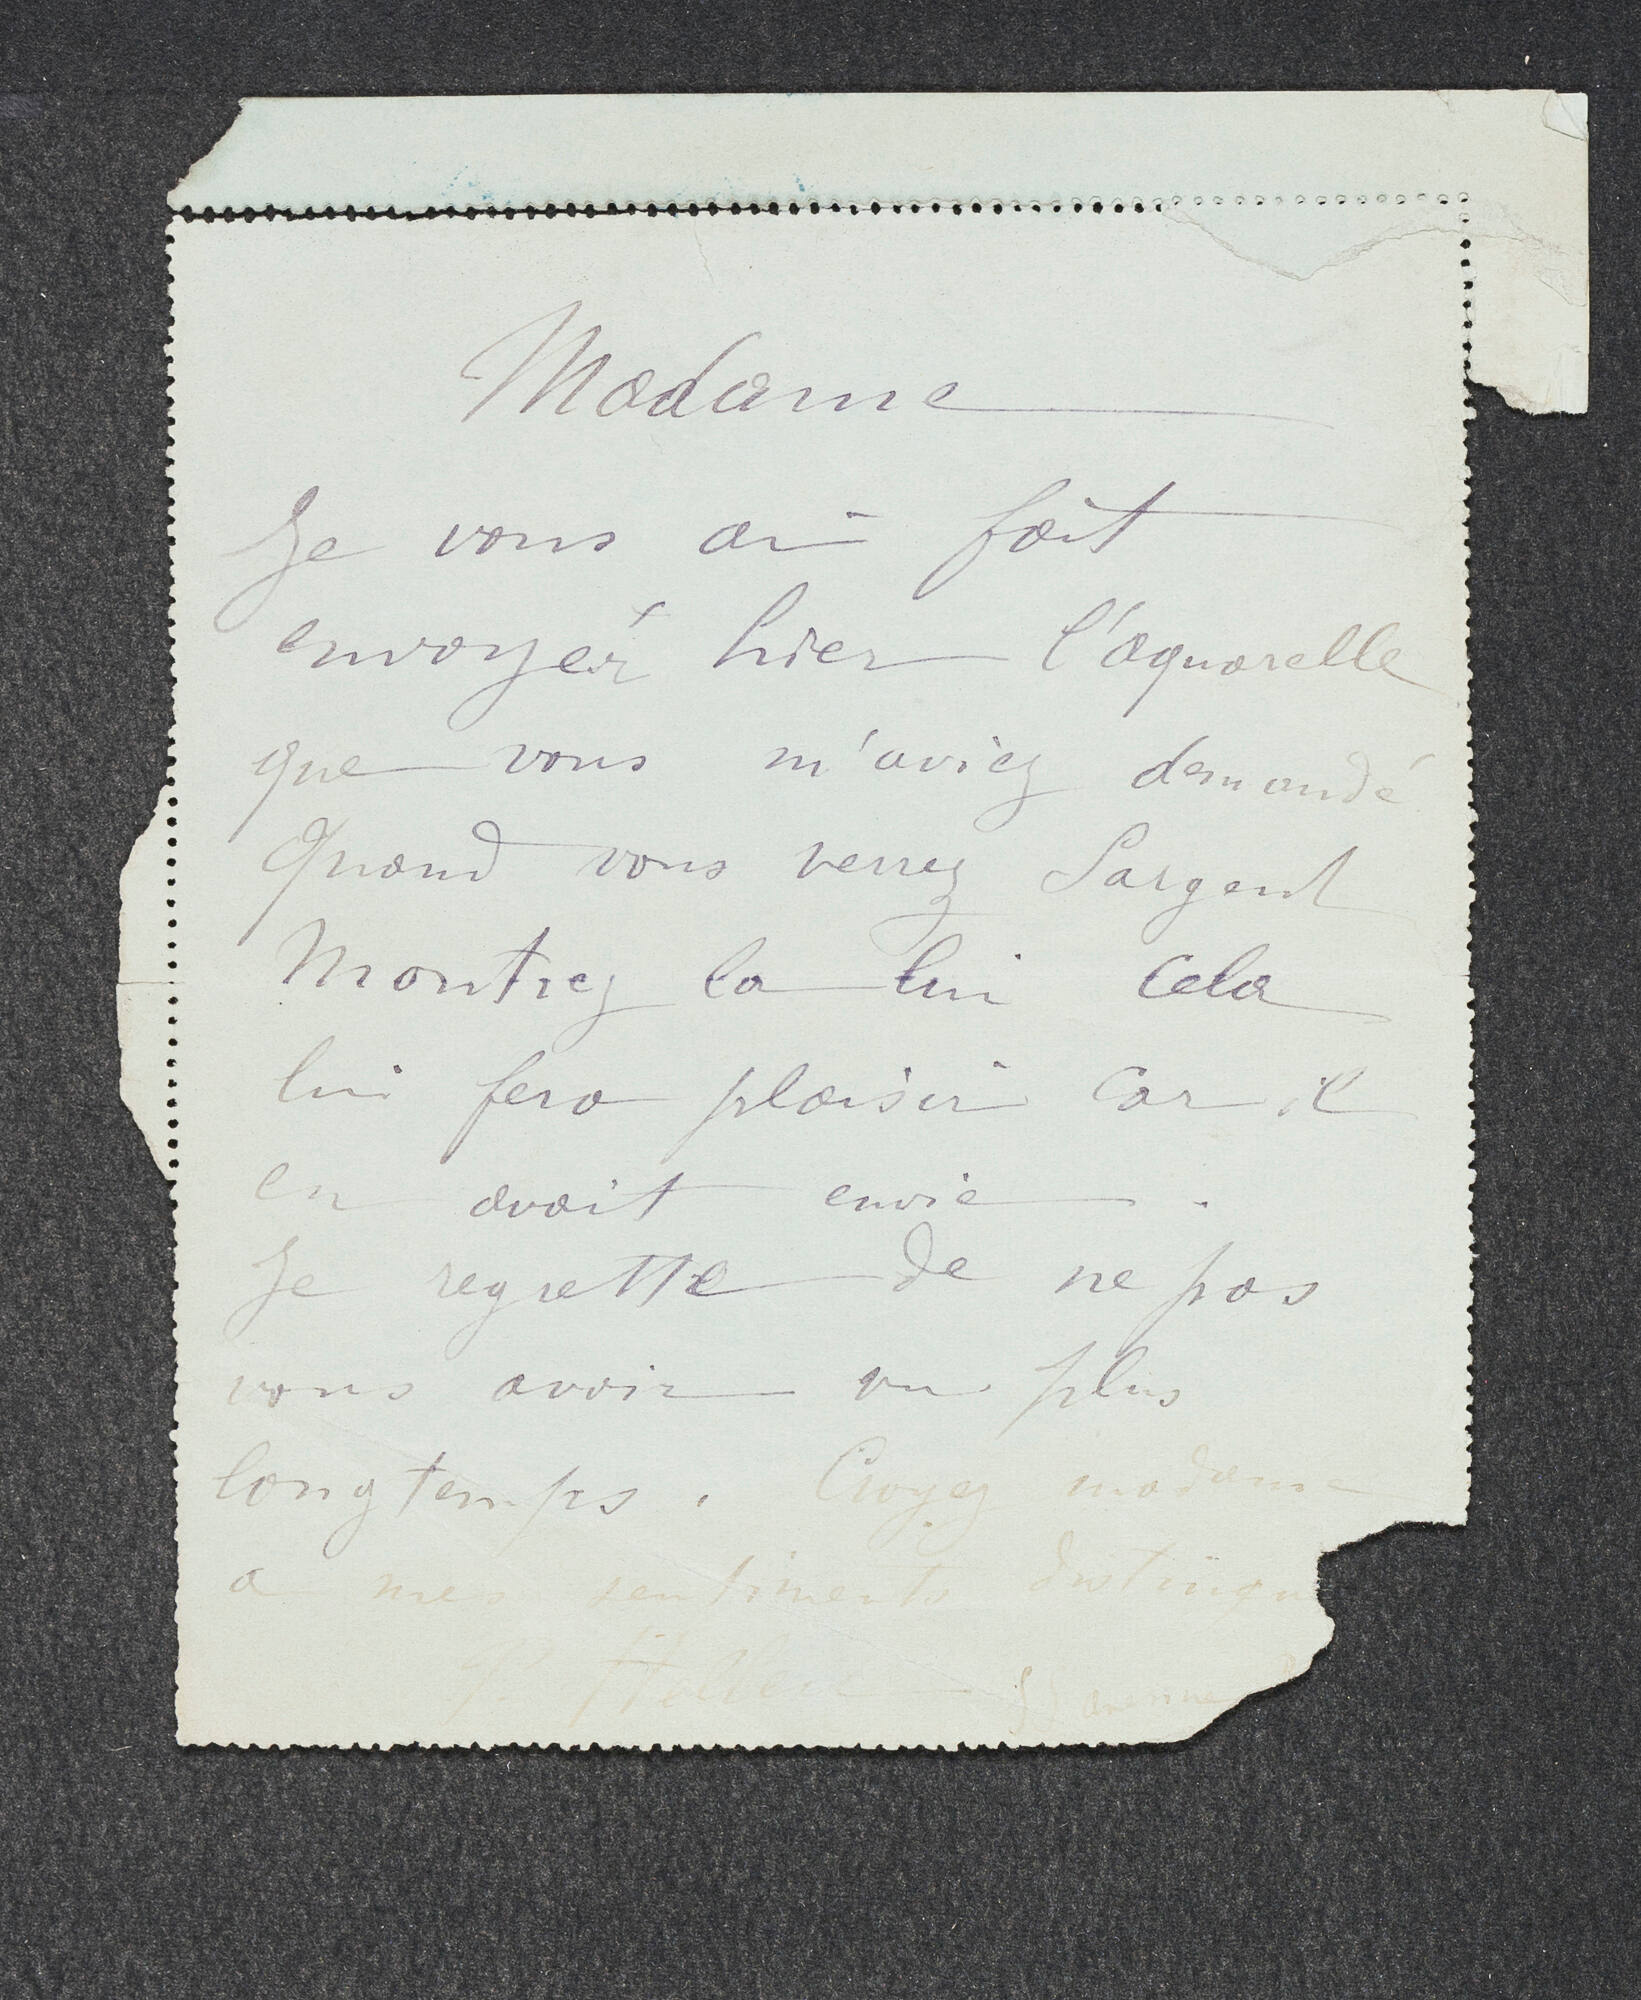 Madame
Je vous ai fait
envoyér hier l'aquarelle
que vous m'aviez demandé
Quand vous verrez Sargent
Montrez la lui Cela
lui fera plaisir Car il
en avait envie .
Je regrette de ne pas
vous avoir vu plus
longtemps . Croyez madame
a mes sentiments distingu
P. Helleu avenue